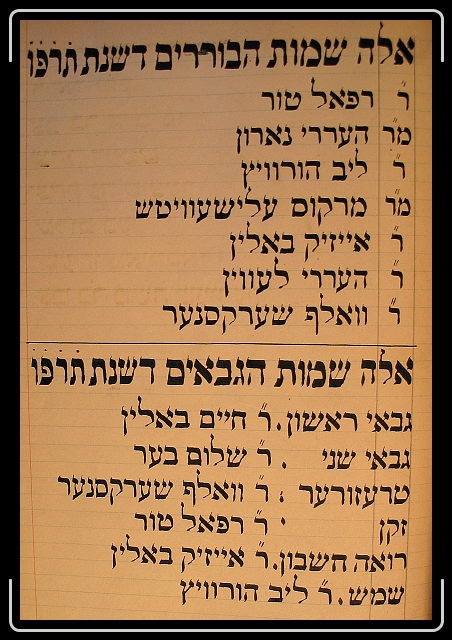 אלה שמות הבוררים דשנת תרפו
ר׳ רפאל טור
מר הערי נארון
ר׳ ליב הורוויץ
מר מרקוס עלישעוויטש
ר׳ אייזיק באלין
ר׳ הערי לעווין
ר׳ וואלף שערקסנער
אלה שמות הגבאים דשנת תרפו
גבאי ראשון. ר׳ חיים באלין
גבאי שני . ר׳ שלום בער
טרעזורער : ר׳ וואלף שערקסנער
זקן ׳ ר׳ רפאל טור
רואה חשבון. ר׳ אייזיק באלין
שמש. ר׳ ליב הורוויץ